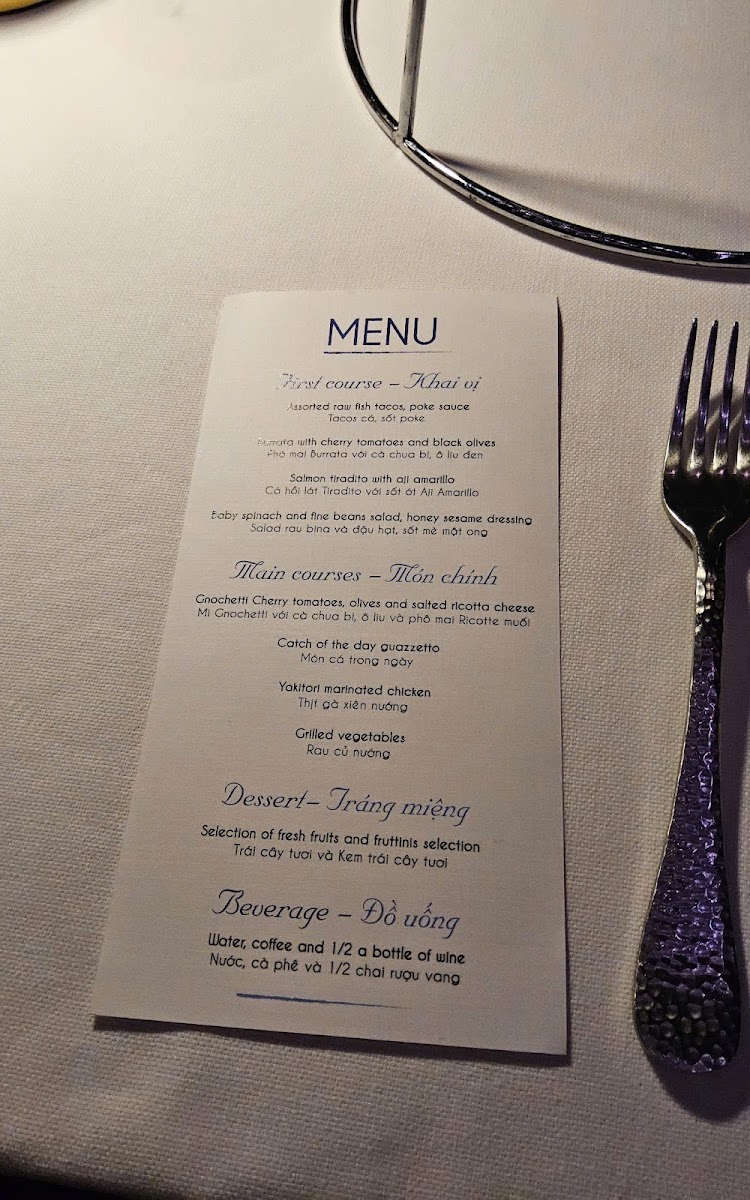 MENU
First course – Khai vị
Assorted raw fish tacos, poke sauce
Tacos cá, sốt poke
Burrata with cherry tomatoes and black olives
Phô mai Burrata với cà chua bi, ô liu đen
Salmon tiradito with aji amarillo
Cá hồi lát Tiradito với sốt ớt Aji Amarillo
Baby spinach and fine beans salad, honey sesame dressing
Salad rau bina và đậu hạt, sốt mè mật ong
Main courses – Món chính
Gnochetti Cherry tomatoes, olives and salted ricotta cheese
Mì Gnochetti với cà chua bi, ô liu và phô mai Ricotte muối
Catch of the day guazzetto
Món cá trong ngày
Yakitori marinated chicken
Thịt gà xiên nướng
Grilled vegetables
Rau củ nướng
Dessert– Tráng miệng
Selection of fresh fruits and fruttinis selection
Trái cây tươi và Kem trái cây tươi
Beverage – Đồ uống
Water, coffee and 1/2 a bottle of wine
Nước, cà phê và 1/2 chai rượu vang